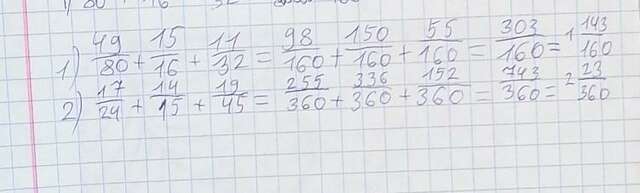 1) 49/80 + 15/16 + 11/32 = 98/160 + 150/160 + 55/160 = 303/160 = 1 143/160
2) 17/24 + 14/15 + 19/45 = 255/360 + 336/360 + 152/360 = 743/360 = 2 23/360